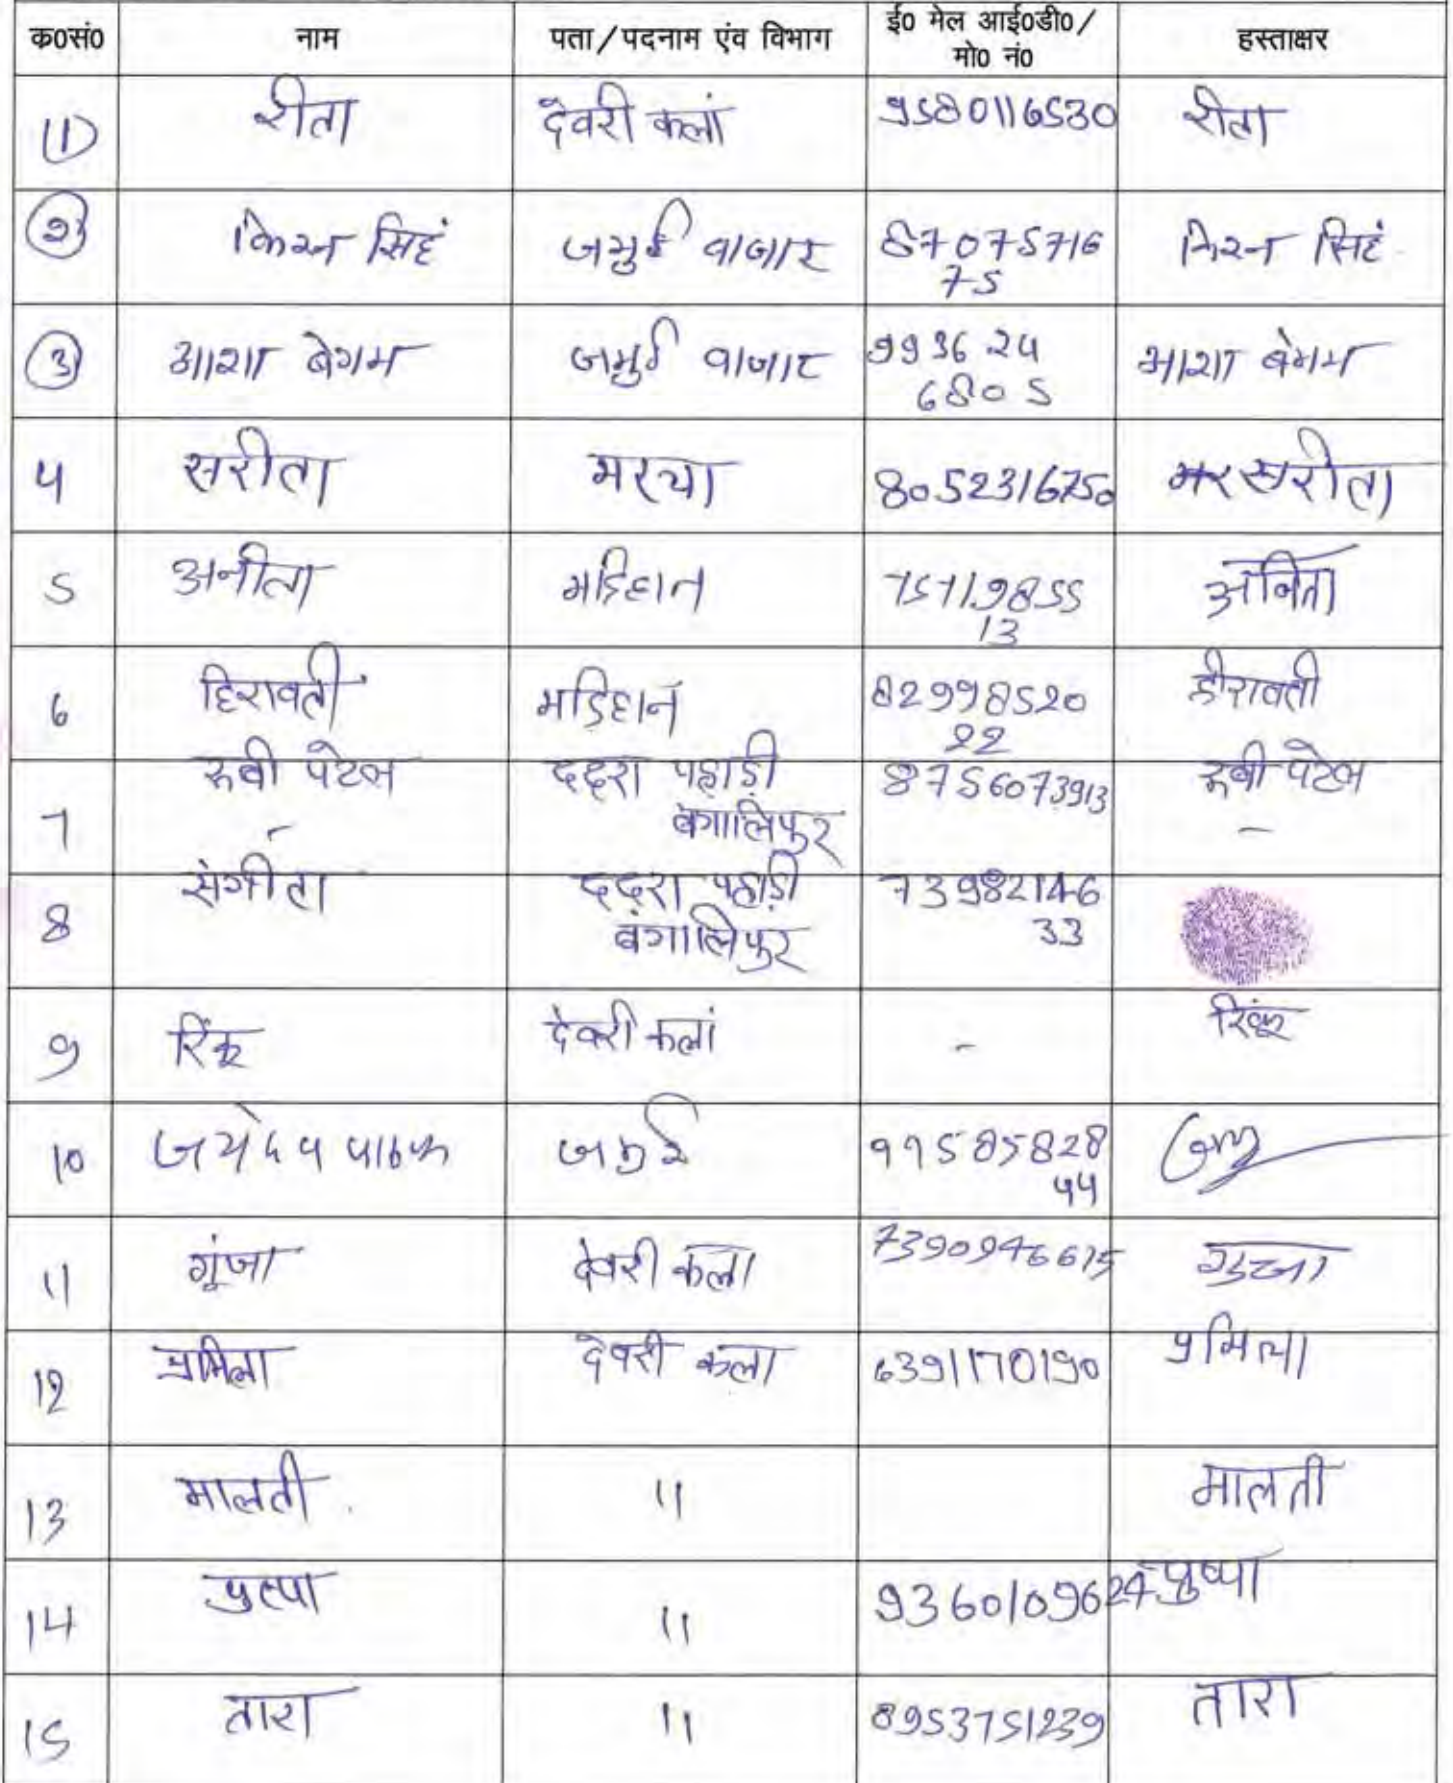 क०सं० नाम पता/पदनाम एंव विभाग ई० मेल आई०डी०/ हस्ताक्षर
मो० नं०
(1) रीता देवरी कलां 9580116530 रीता
(2) किरन सिहं जमुई वाजार 87075716 किरन सिहं
75
(3) आशा बेगम जमुई वाजार 993624 आशा बेगम
6805
4 सरीता मरचा 8052316750 सरीता
5 अनीता मडिहान 75719855 अनिता
13
6 हिरावती मडिहान 82998520 हीरावती
22
7 रुबी पटेल ददरा पहाड़ी 8756073913 रुबी पटेल
बंगालिपुर
8 संगीता ददरा पहाड़ी 73982146
बंगालिपुर 33
9 रिंकू देवरी कलां - रिंकू
10 जयदेव पाठक जमुई 99585828
54
11 गूंजा देवरी कला 7390946615 गुन्जा
12 प्रमिला देवरी कला 6391170190 प्रमिला
13 मालती 11 मालती
14 पुष्पा 11 9360109624 पुष्पा
15 तारा 11 8953751239 तारा